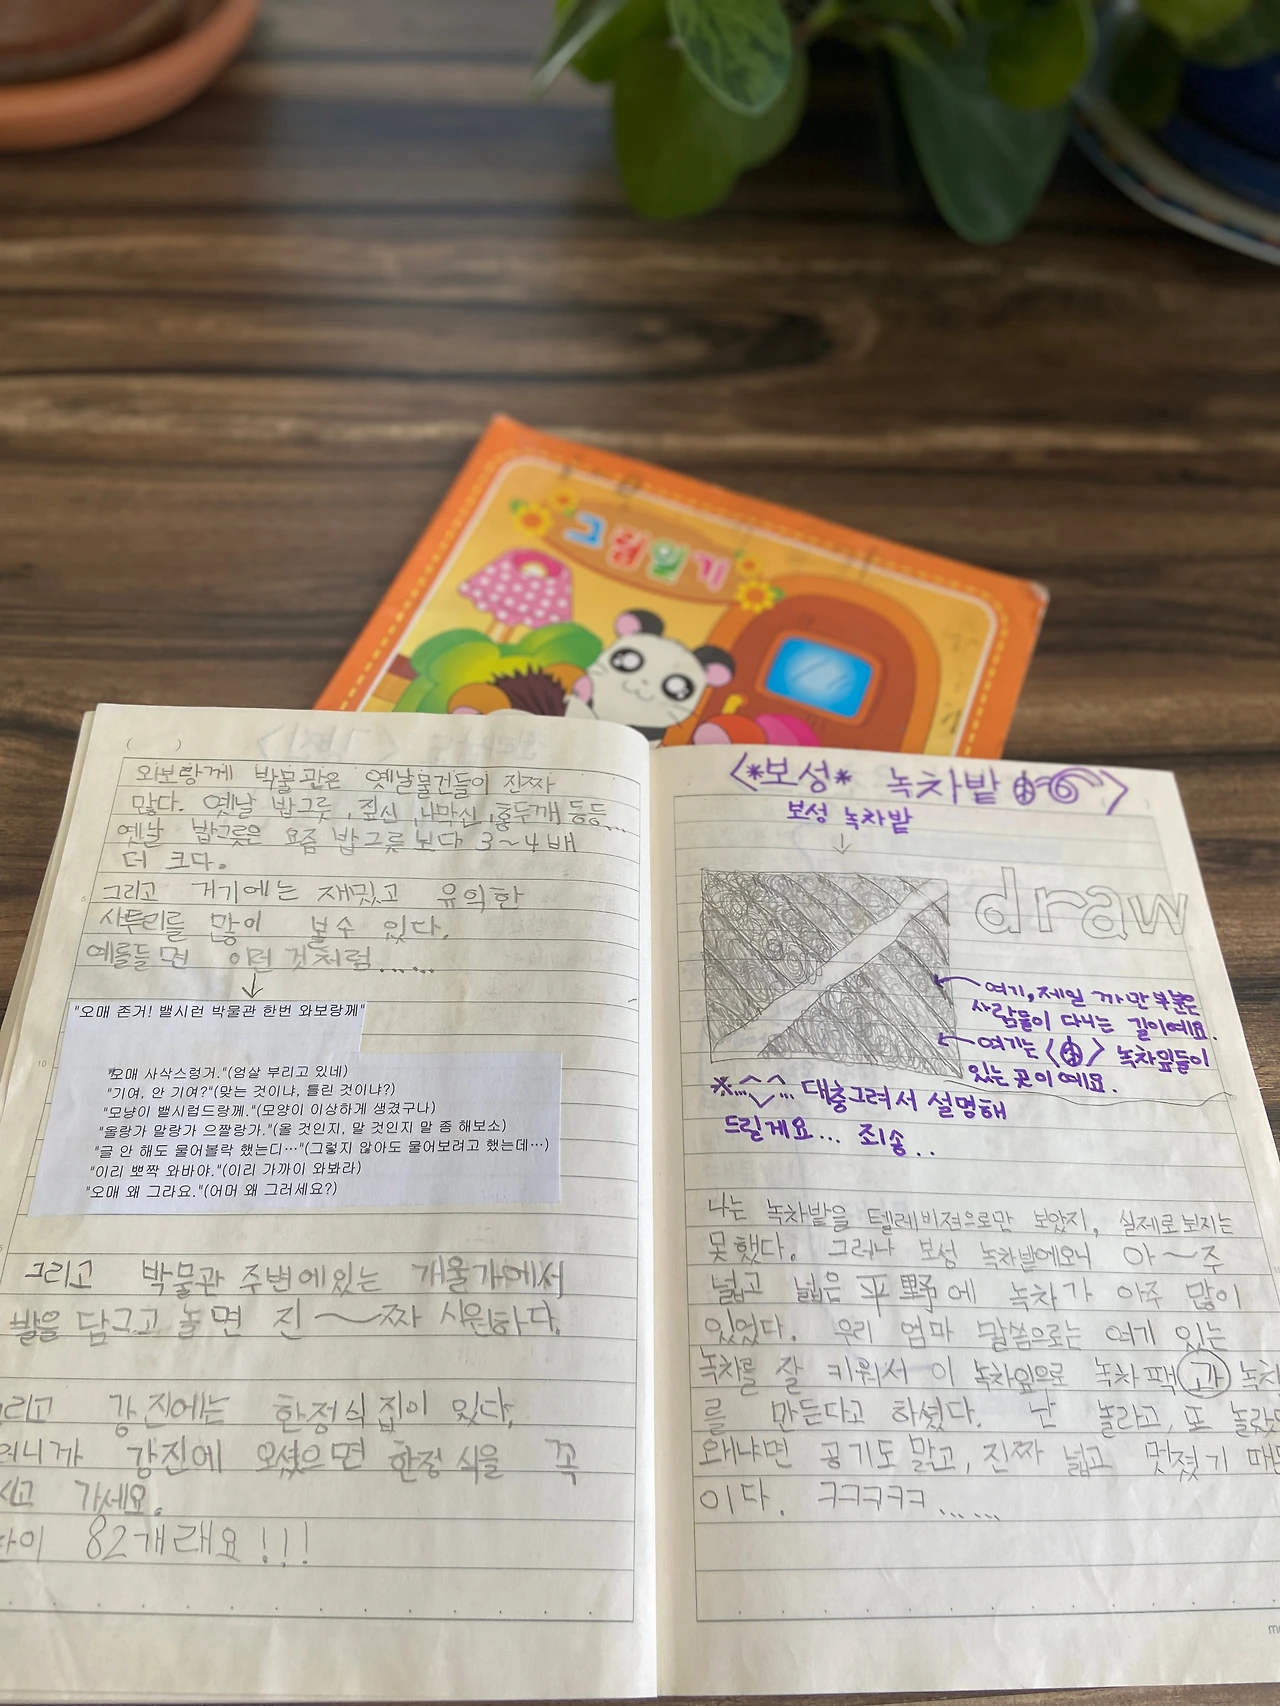 그림일기
와보랑께 박물관은 옛날물건들이 진짜
많다. 옛날 밥그릇, 짚신, 나막신, 홍두깨 등등...
옛날 밥그릇은 요즘 밥그릇 보다 3~4배
더 크다.
그리고 거기에는 재밌고 유익한
사투리를 많이 볼수 있다.
예를들면 이런 것처럼......
"오매 존거! 뱰시런 박물관 한번 와보랑께"
"오매 사삭스렁거."(엄살 부리고 있네)
"기여, 안 기여?"(맞는 것이냐, 틀린 것이냐?)
"모냥이 뱰시럽드랑께."(모양이 이상하게 생겼구나)
"올랑가 말랑가 으짤랑가."(올 것인지, 말 것인지 말 좀 해보소)
"글 안 해도 물어볼락 했는디…"(그렇지 않아도 물어보려고 했는데…)
"이리 뽀짝 와바야."(이리 가까이 와봐라)
"오매 왜 그라요."(어머 왜 그러세요?)
그리고 박물관 주변에있는 개울가에서
발을 담그고 놀면 진~짜 시원하다.
그리고 강진에는 한정식집이 있다,
강진에 오셨으면 한정식을 꼭
가세요.
82개래요!!!
<*보성* 녹차밭>
보성 녹차밭
draw
여기, 제일 까만 부분은
사람들이 다니는 길이예요.
여기는 < > 녹차잎들이
있는 곳이예요.
※...^^... 대충그려서 설명해
드릴게요... 죄송..
나는 녹차밭을 텔레비젼으로만 보았지, 실제로보지는
못했다. 그러나 보성 녹차밭에오니 아~주
넓고 넓은 平野에 녹차가 아주 많이
있었다. 우리 엄마 말씀으로는 여기 있는
녹차를 잘 키워서 이 녹차잎으로 녹차팩과 녹차
를 만든다고 하셨다. 난 놀라고, 또 놀랐다
왜냐면 공기도 맑고, 진짜 넓고 멋졌기 때문
이다. ㅋㅋㅋㅋㅋ......